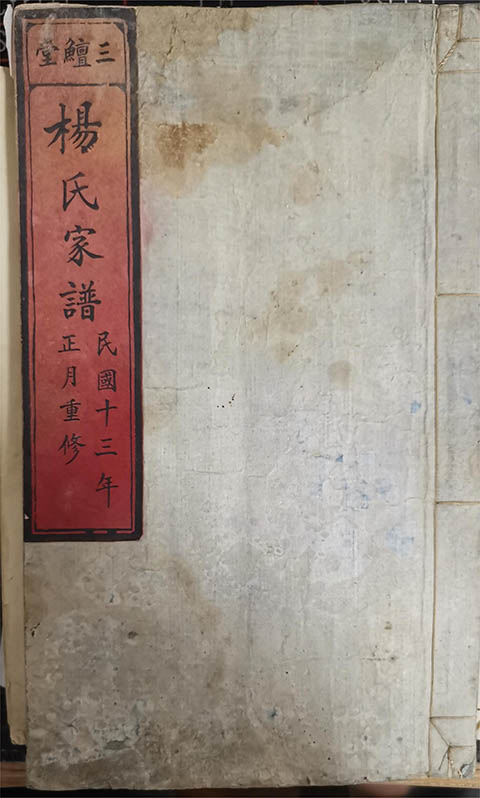 三鱣堂
楊氏家譜
民國十三年
正月重修